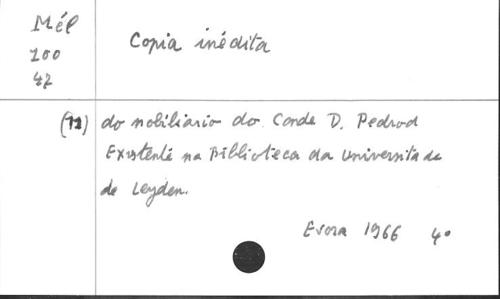 Mél
100
47
Copia inédita
(11) do nobiliario do Conde D. Pedrod
Existente na Biblioteca da Universitade
de Leyden.
Evora 1966 4º